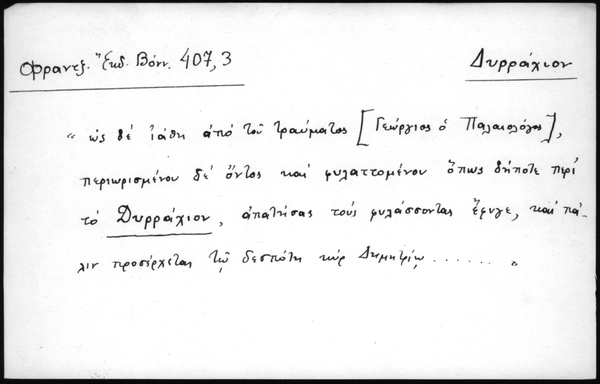 Φραντζ. Ἔκδ. Βόνν. 407,3
Δυρράχιον
“ ὡς δὲ ἰάθη ἀπό τοῦ τραύματος [Γεώργιος ὁ Παλαιολόγος],
περιωρισμένου δέ ὄντος καί φυλαττομένου ὅπως δήποτε περί
τό Δυρράχιον, ἀπατήσας τούς φυλάσσοντας ἔφυγε, καί πά-
λιν προσέρχεται τῷ δεσπότῃ κύρ Δημητρίῳ ....... „